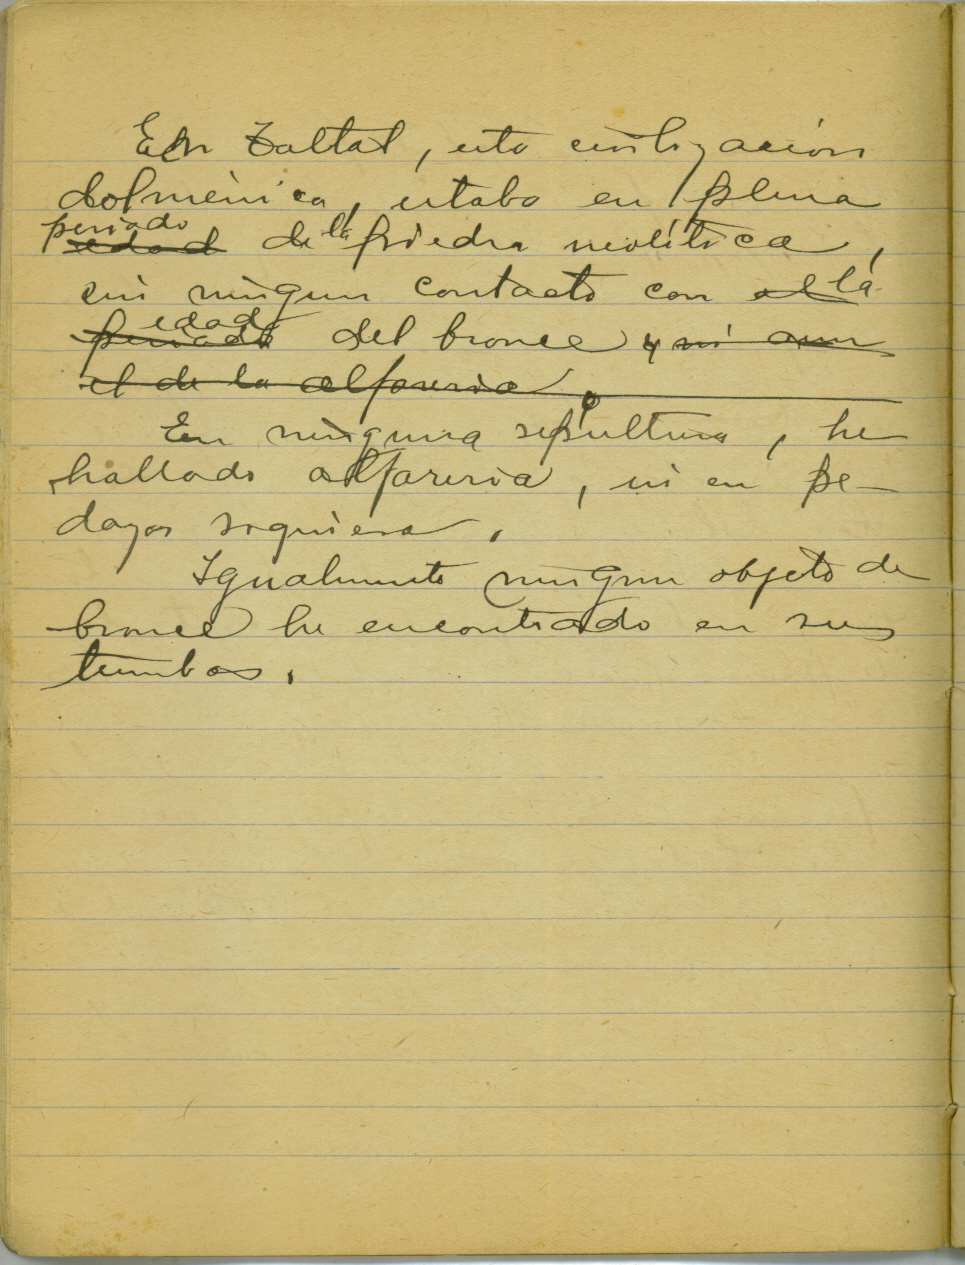 En Taltal, esta civilización
dolménica, estaba en plena
periodo
edad de la piedra neolítica,
sin ningun contacto con el la
edad
periodo del bronce y ni aun
el de la alfareria.
En ninguna sepultura, he
hallado alfareria, ni en pe-
dazos siquiera.
Igualmente ningun objeto de
bronce he encontrado en sus
tumbas.